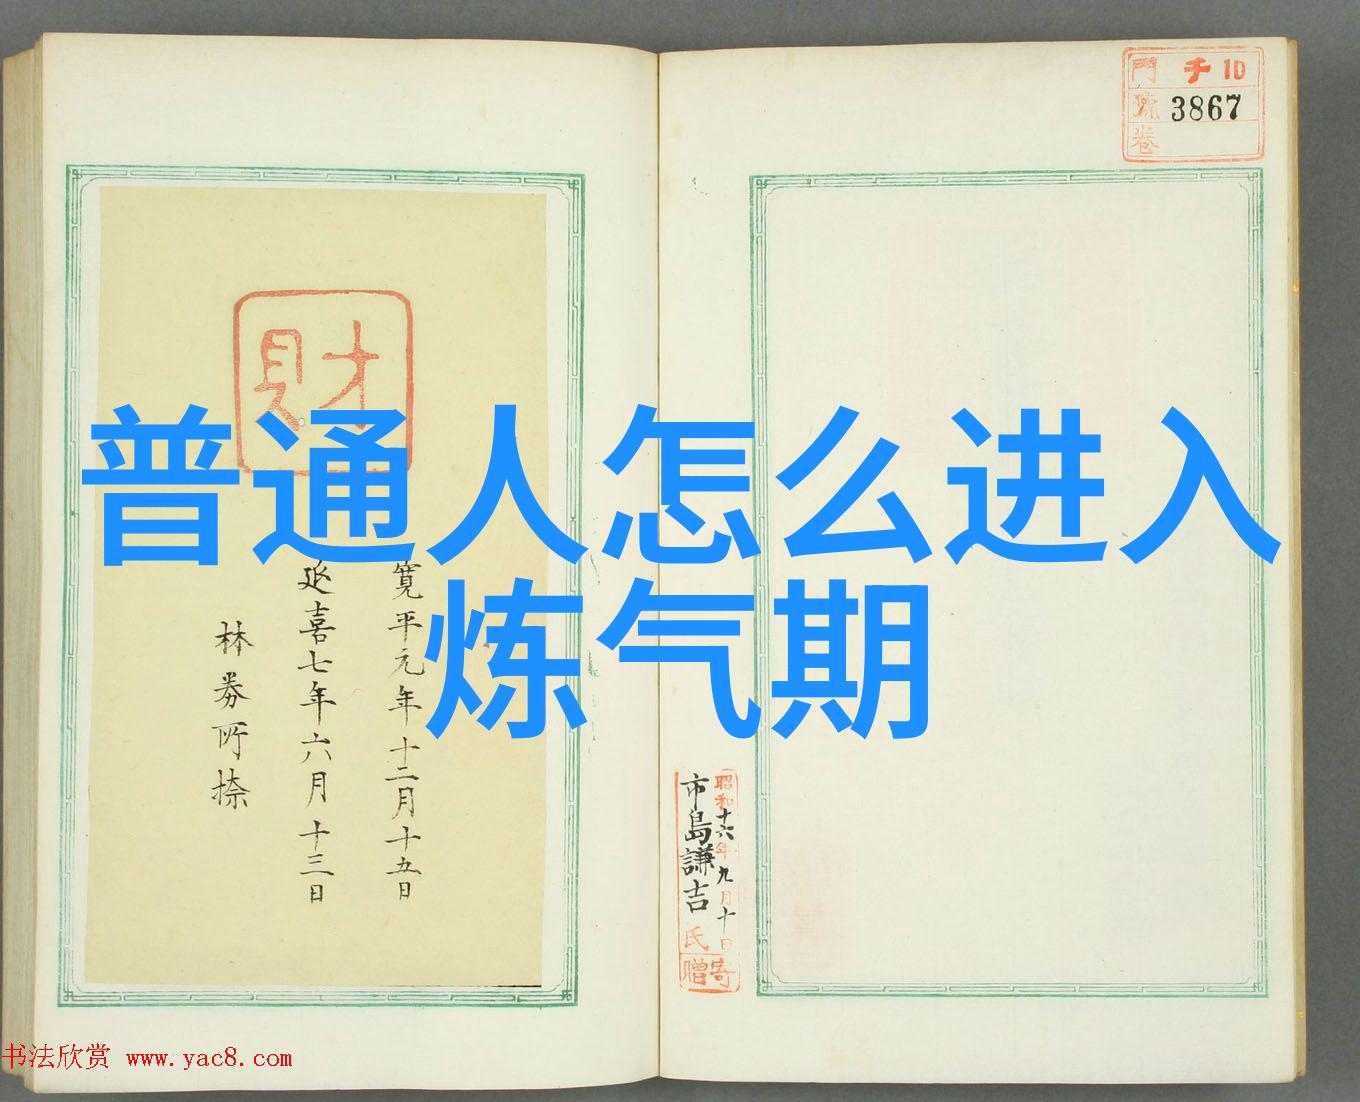 普通人怎么进入
炼气期
財
寛平元年十二月十五日
延喜七年六月十三日
林券所捺
門 千 10
號 3867
卷
昭和十六年九月十日
市島謙吉氏
寄贈
书法欣赏 www.yac8.com